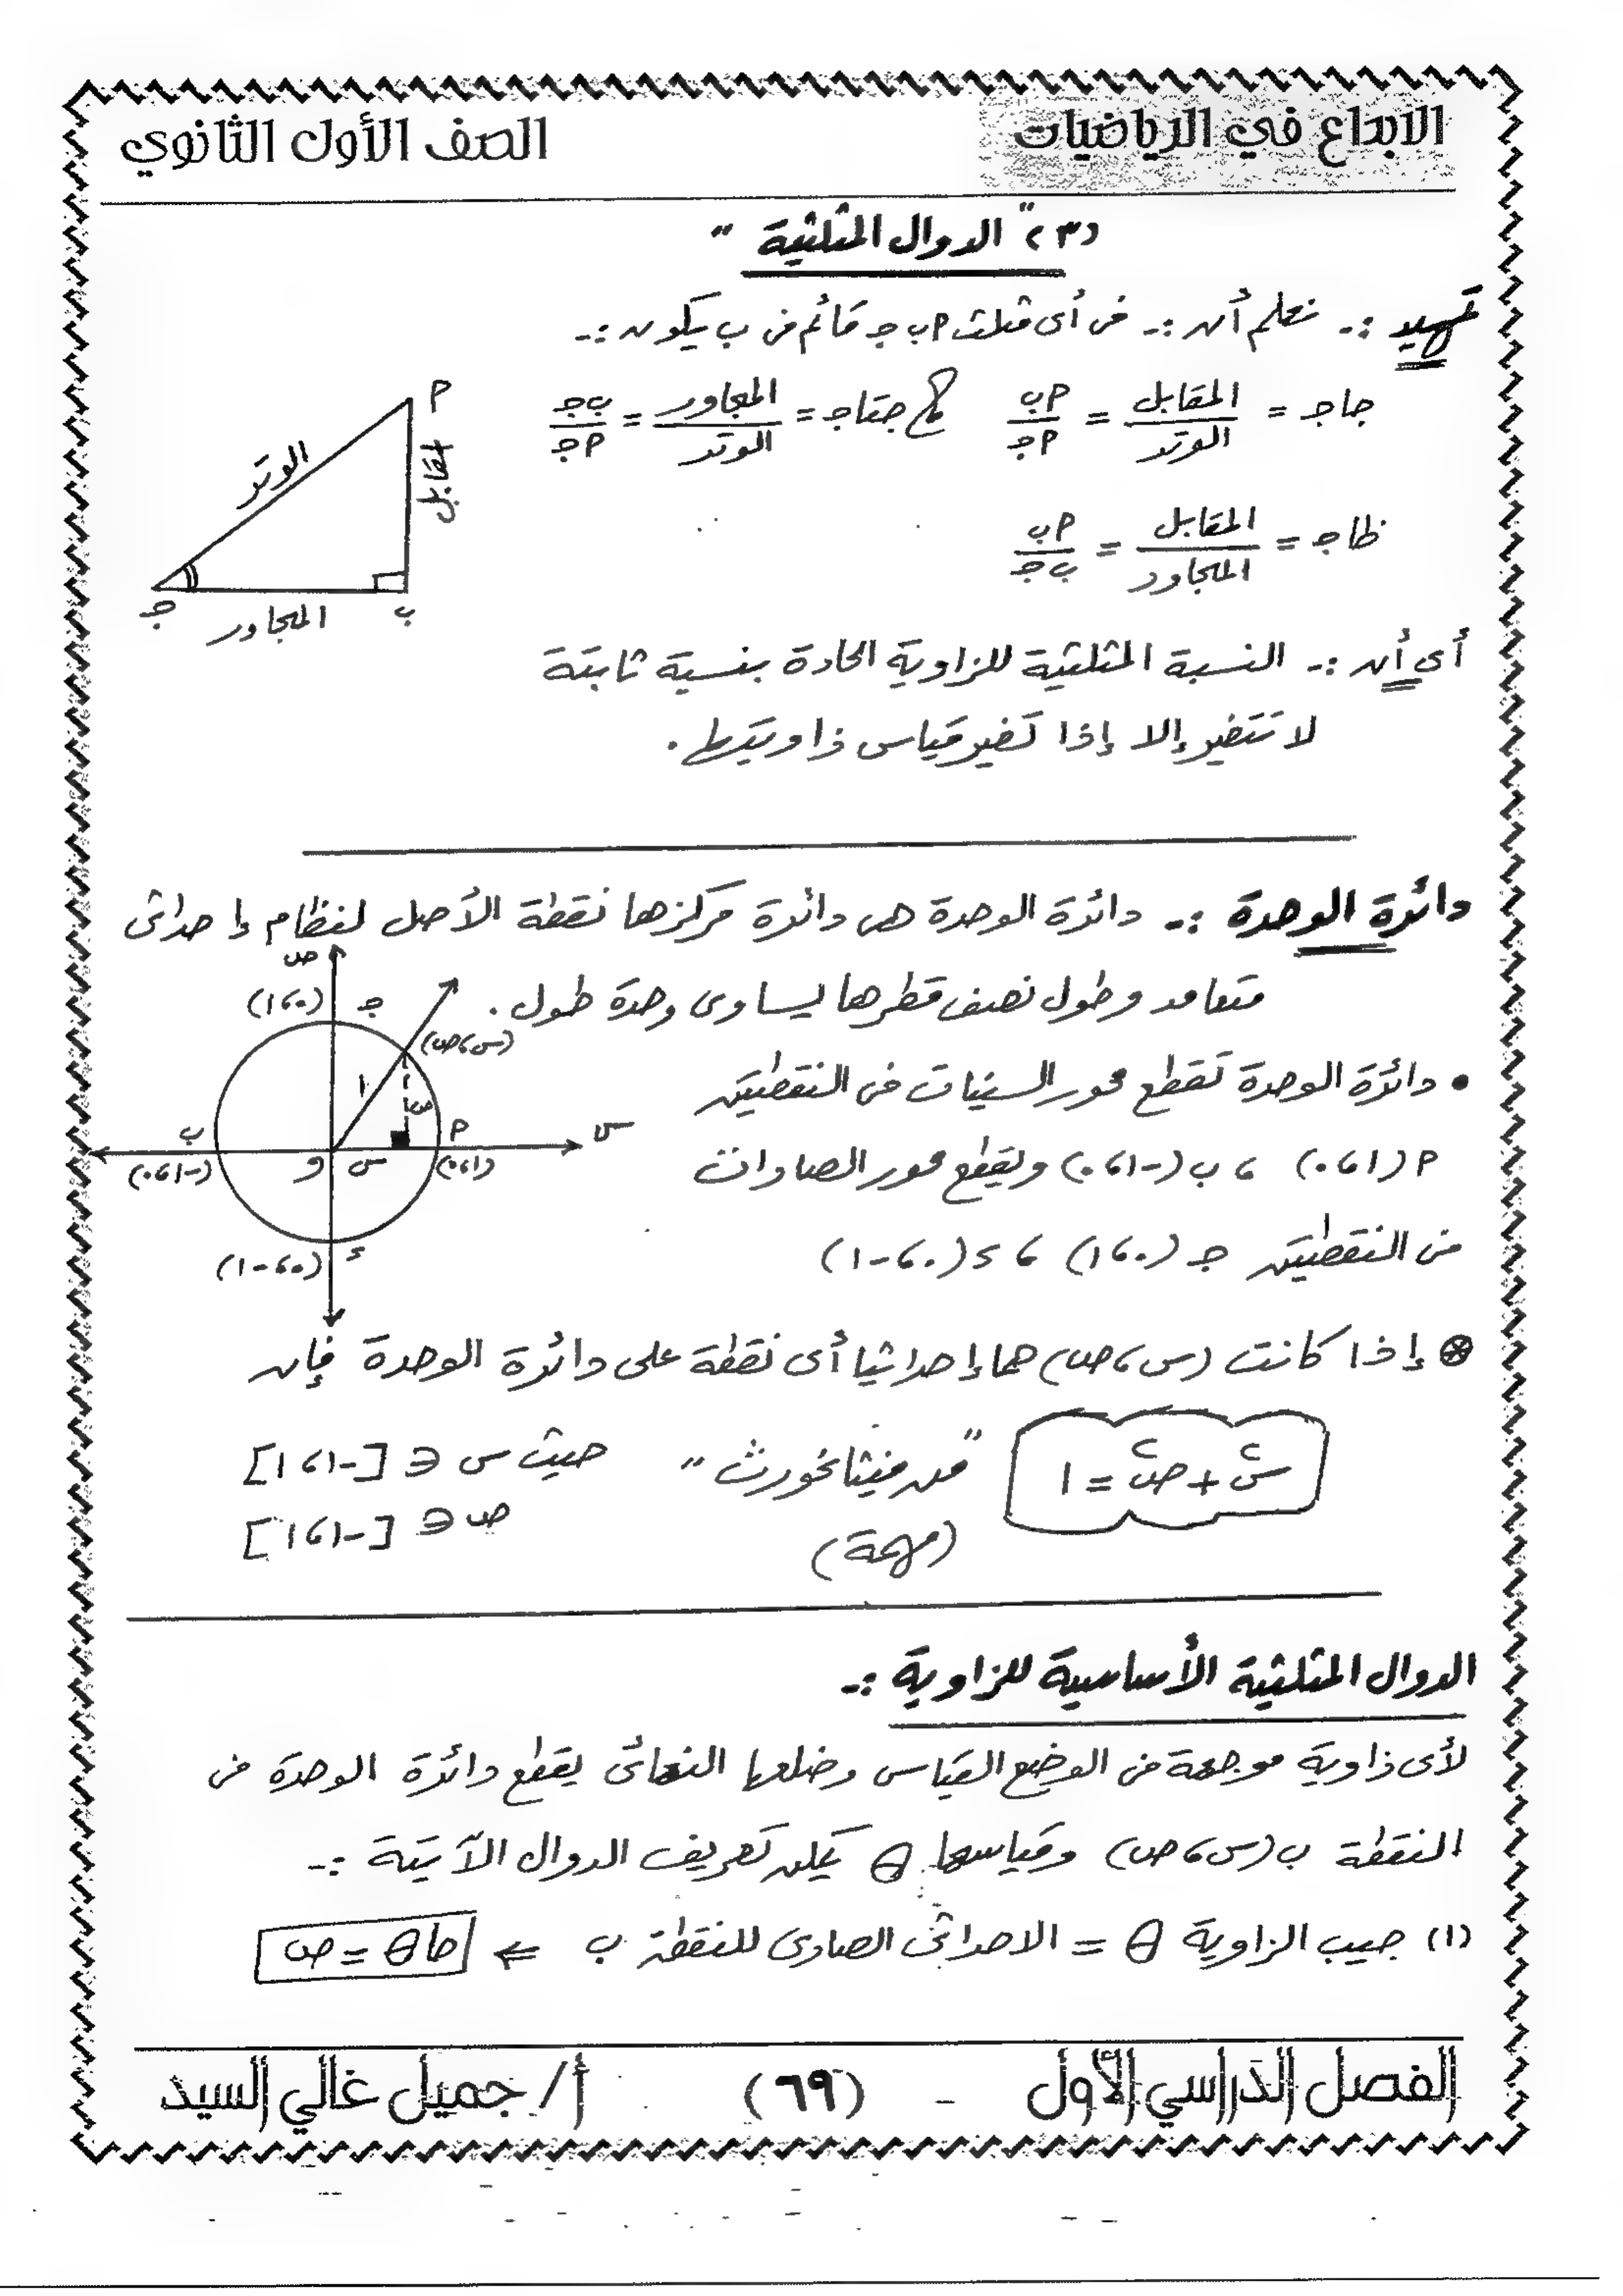 الابداع في الرياضيات
الصف الأول الثانوي
(٣) " الدوال المثلثية "
تمهيد :- نعلم أن :- فى أى مثلث أ ب جـ قائم فى ب يكون :-
جا جـ = المقابل / الوتر = أ ب / أ جـ ، جتا جـ = المجاور / الوتر = ب جـ / أ جـ
ظا جـ = المقابل / المجاور = أ ب / ب جـ
أ
الوتر
مقابل
جـ
المجاور
ب
أى أن :- النسبة المثلثية للزاوية الحادة بنسبة ثابتة
لا تتغير إلا إذا تغير قياس زاويتها .
دائرة الوحدة :- دائرة الوحدة هى دائرة مركزها نقطة الأصل لنظام إحداثى
متعامد وطول نصف قطرها يساوى وحدة طول .
• دائرة الوحدة تقطع محور السينات فى النقطتين
أ (١ ، ٠) ، ب (-١ ، ٠) ويقطع محور الصادات
فى النقطتين جـ (٠ ، ١) ، د (٠ ، -١)
ص
(٠ ، ١)
جـ
(س ، ص)
١
ص
ب
أ
س
(-١ ، ٠)
و
س
(١ ، ٠)
(٠ ، -١)
د
⊛ إذا كانت (س ، ص) هما إحداثيا أى نقطة على دائرة الوحدة فإن
س٢ + ص٢ = ١ " من فيثاغورث " حيث س ∈ [-١ ، ١]
(مهمة) ص ∈ [-١ ، ١]
الدوال المثلثية الأساسية للزاوية :-
لأى زاوية موجهة فى الوضع القياسى وضلعها النهائى يقطع دائرة الوحدة فى
النقطة ب (س ، ص) وقياسها θ يمكن تعريف الدوال الآتية :-
(١) جيب الزاوية θ = الاحداثى الصادى للنقطة ب ⇐ جا θ = ص
الفصل الدراسي الأول - (٦٩) أ/ جميل غالي السيد